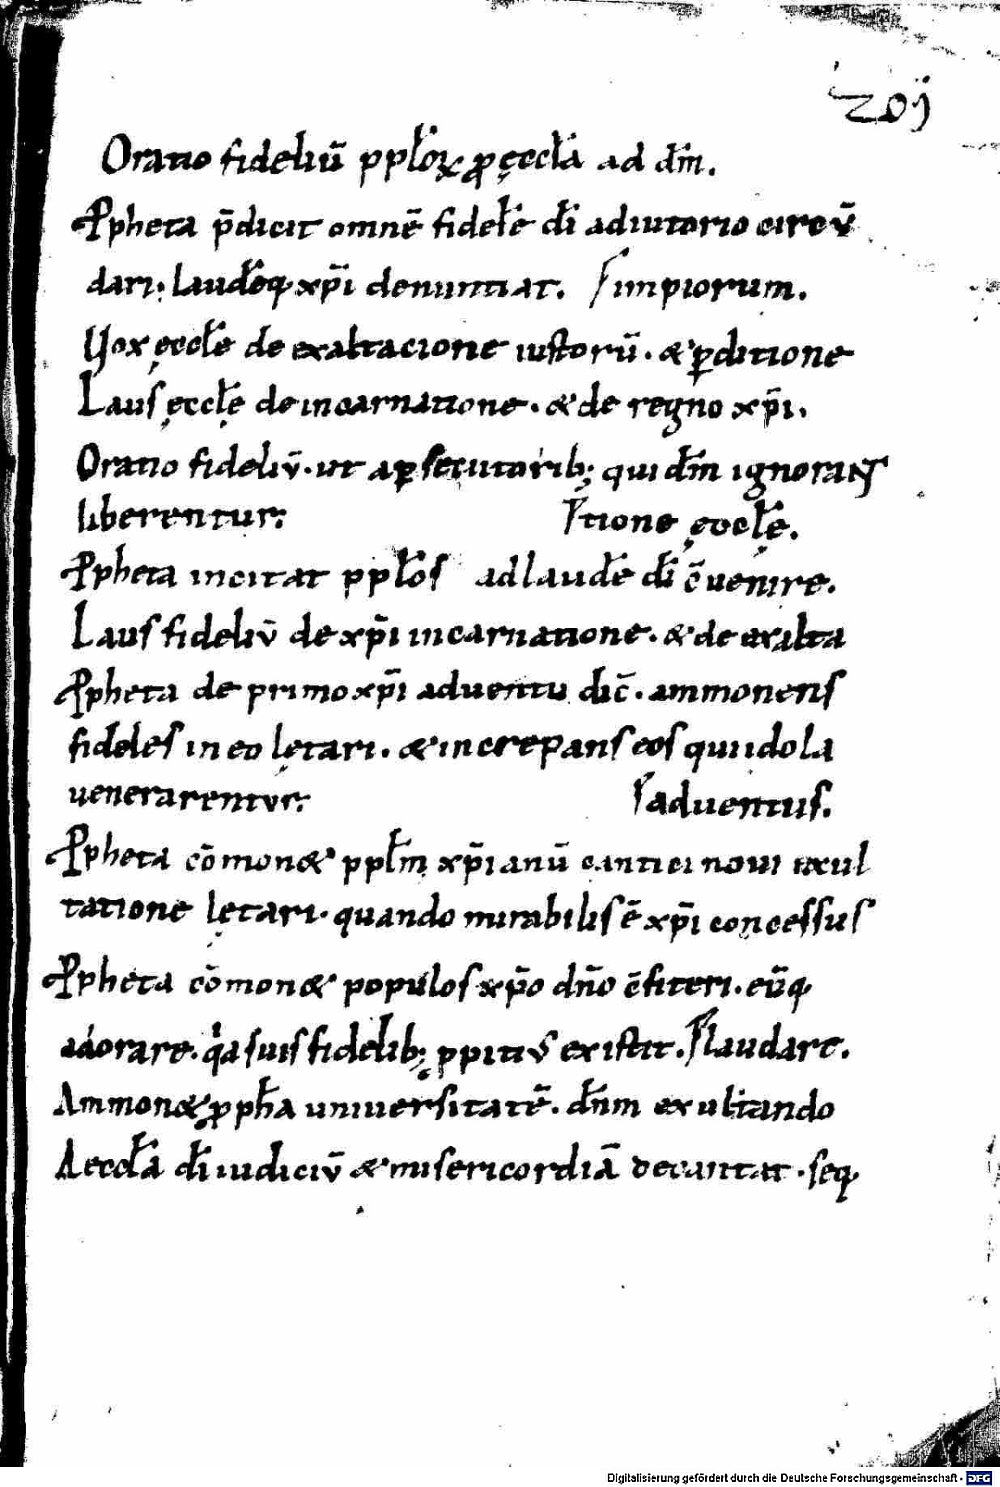 201
Oratio fideliū pplōꝝ ꝓ ęcclā ad dm̄.
Ꝓpheta p̄dicit omnē fidelē dī adiutorio circū
dari. laudēq; xp̄i denuntiat. impiorum.
Vox ęcclę̄ de exaltacione iustorū. & ꝑditione
Laus ęcclę̄ de incarnatione. & de regno xp̄i.
Oratio fideliū. ut a ꝑsecutorib; qui dm̄ ignorant
liberentur. tione ęcclę̄.
Ꝓpheta incitat pplōs ad laudē dī c̄uenire.
Laus fideliū de xp̄i incarnatione. & de exalta
Ꝓpheta de primo xp̄i aduentu dic̄. ammonens
fideles in eo lętari. & increpans eos qui idola
uenerarentur. aduentus.
Ꝓpheta cōmon& pplm̄ xp̄ianū cantici noui exul
tatione lętari. quando mirabilis ē xp̄i concessus
Ꝓpheta cōmon& populos xp̄o dn̄o c̄fiteri. eūq;
adorare. qa suis fidelib; ꝓpitius existit. laudare.
Ammon& ꝓpha uniuersitatē. dn̄m exultando
Aecclā dī iudiciū & misericordiā decantat. seq;
Digitalisierung gefördert durch die Deutsche Forschungsgemeinschaft - DFG